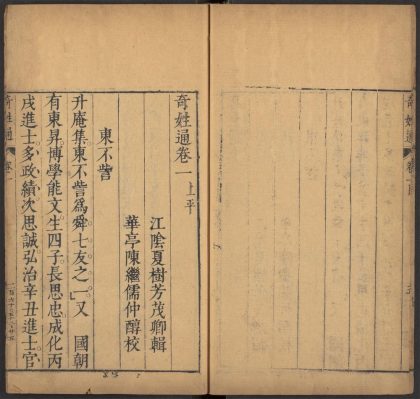 奇姓通卷一 上平
江陰夏樹芳茂卿輯
華亭陳繼儒仲醇校
東不訾
升庵集東不訾爲舜七友之一又 國朝
有東昇博學能文生四子長思忠成化丙
戌進士多政績次思誠弘治辛丑進士官
奇姓通 卷一